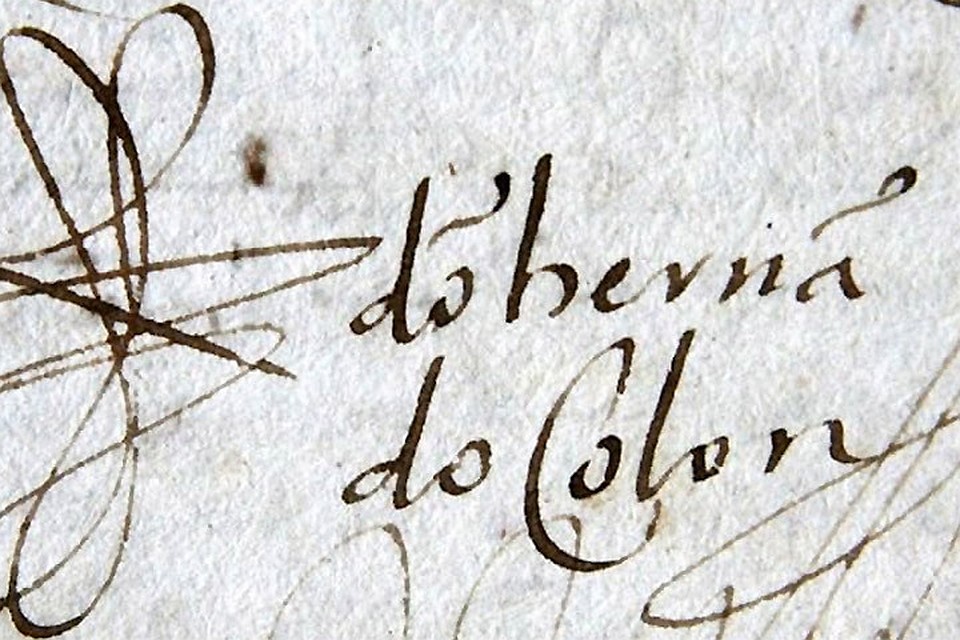 dõ hernã
do Colon